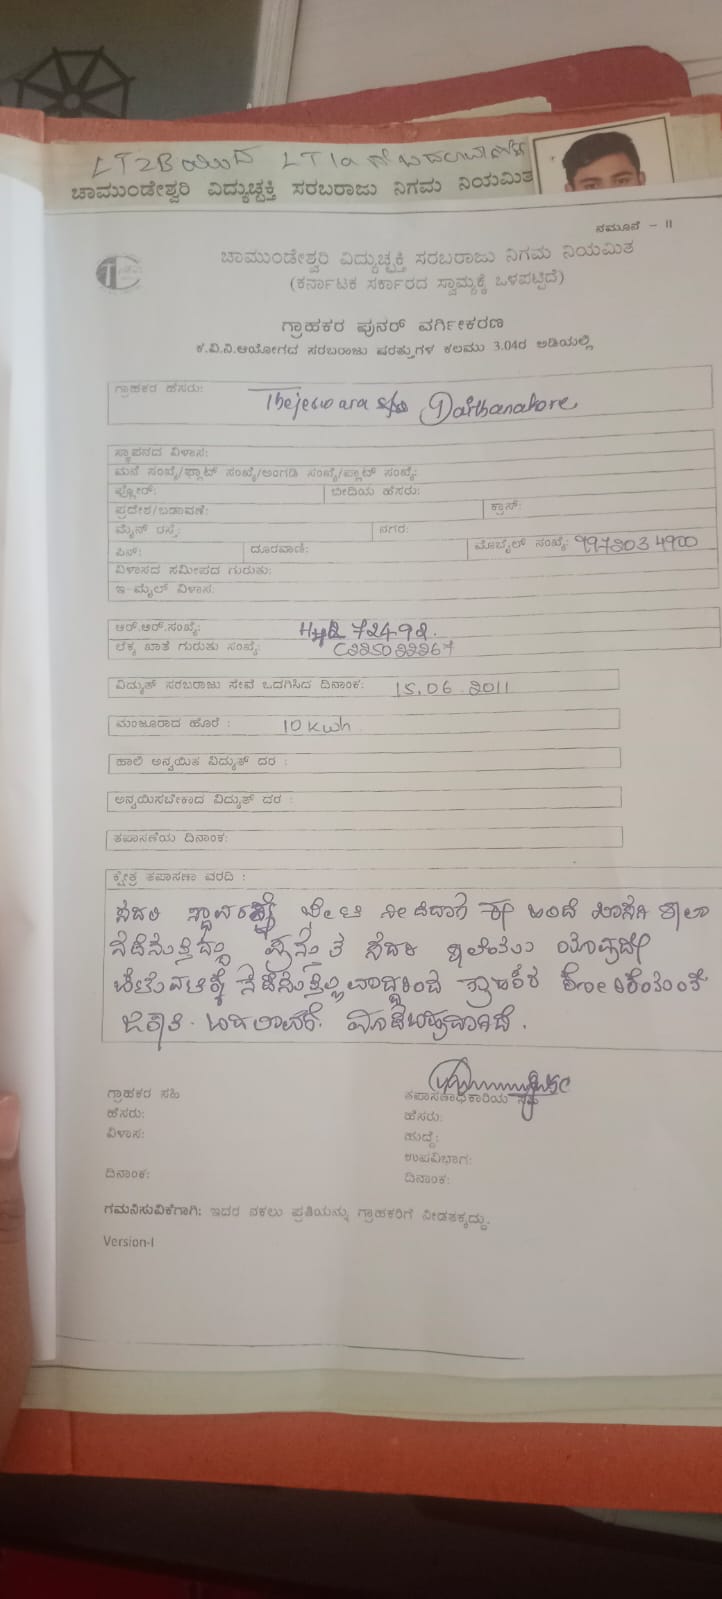 LT2B ಯಿಂದ LT1a ಗೆ ಬದಲಾವಣೆ
ಚಾಮುಂಡೇಶ್ವರಿ ವಿದ್ಯುಚ್ಛಕ್ತಿ ಸರಬರಾಜು ನಿಗಮ ನಿಯಮಿತ
ನಮೂನೆ - II
ಚಾಮುಂಡೇಶ್ವರಿ ವಿದ್ಯುಚ್ಛಕ್ತಿ ಸರಬರಾಜು ನಿಗಮ ನಿಯಮಿತ
(ಕರ್ನಾಟಕ ಸರ್ಕಾರದ ಸ್ವಾಮ್ಯಕ್ಕೆ ಒಳಪಟ್ಟಿದೆ)
ಗ್ರಾಹಕರ ಪುನರ್ ವರ್ಗೀಕರಣ
ಕ.ವಿ.ನಿ.ಆಯೋಗದ ಸರಬರಾಜು ಷರತ್ತುಗಳ ಕಲಮು 3.04ರ ಅಡಿಯಲ್ಲಿ
ಗ್ರಾಹಕರ ಹೆಸರು: Thejeswara s/o
ಸ್ಥಾಪನದ ವಿಳಾಸ:
ಮನೆ ಸಂಖ್ಯೆ/ಫ್ಲಾಟ್ ಸಂಖ್ಯೆ/ಅಂಗಡಿ ಸಂಖ್ಯೆ/ಪ್ಲಾಟ್ ಸಂಖ್ಯೆ:
ಫ್ಲೋರ್: ಬೀದಿಯ ಹೆಸರು:
ಪ್ರದೇಶ/ಬಡಾವಣೆ: ಕ್ರಾಸ್:
ಮೈನ್ ರಸ್ತೆ: ನಗರ:
ಪಿನ್: ದೂರವಾಣಿ: ಮೊಬೈಲ್ ಸಂಖ್ಯೆ:
ವಿಳಾಸದ ಸಮೀಪದ ಗುರುತು:
ಇ-ಮೈಲ್ ವಿಳಾಸ:
ಆರ್.ಆರ್.ಸಂಖ್ಯೆ: 72492.
ಲೆಕ್ಕ ಖಾತೆ ಗುರುತು ಸಂಖ್ಯೆ:
ವಿದ್ಯುತ್ ಸರಬರಾಜು ಸೇವೆ ಒದಗಿಸಿದ ದಿನಾಂಕ: 15.06.2011
ಮಂಜೂರಾದ ಹೊರೆ : 10 Kwh
ಹಾಲಿ ಅನ್ವಯಿತ ವಿದ್ಯುತ್ ದರ :
ಅನ್ವಯಿಸಬೇಕಾದ ವಿದ್ಯುತ್ ದರ :
ತಪಾಸಣೆಯ ದಿನಾಂಕ:
ಕ್ಷೇತ್ರ ತಪಾಸಣಾ ವರದಿ :
ಸದರಿ ಸ್ಥಾವರಕ್ಕೆ ಭೇಟಿ ನೀಡಿದಾಗ ಈ ಹಿಂದೆ ಖಾಸಗಿ ಶಾಲಾ
ನಡೆಸುತ್ತಿದ್ದು ಪ್ರಸ್ತುತ ಸದರಿ ಯಾವುದೇ
ಚಟುವಟಿಕೆ ನಡೆಸುತ್ತಿಲ್ಲವಾದ್ದರಿಂದ ಗ್ರಾಹಕರ ಕೋರಿಕೆಯಂತೆ
ಜಕಾತಿ ಬದಲಾವಣೆ ಮಾಡಬಹುದಾಗಿದೆ.
ಗ್ರಾಹಕರ ಸಹಿ ತಪಾಸಣಾಧಿಕಾರಿಯ ಸಹಿ
ಹೆಸರು: ಹೆಸರು:
ವಿಳಾಸ: ಹುದ್ದೆ:
ಉಪವಿಭಾಗ:
ದಿನಾಂಕ: ದಿನಾಂಕ:
ಗಮನಿಸುವಿಕೆಗಾಗಿ: ಇದರ ನಕಲು ಪ್ರತಿಯನ್ನು ಗ್ರಾಹಕರಿಗೆ ನೀಡತಕ್ಕದ್ದು.
Version-I